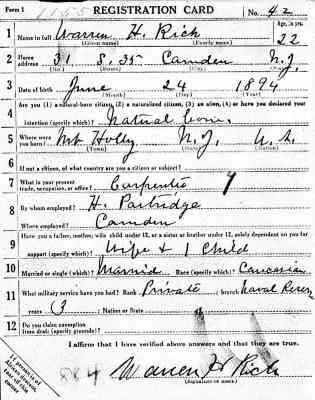 Form 1 1155 REGISTRATION CARD No. 42
1 Name in full Warren H. Rich Age, in yrs.
(Given name) (Family name) 22
2 Home address 31 S. 35 Camden N.J.
(No.) (Street) (City) (State)
3 Date of birth June 24 1894
(Month) (Day) (Year)
4 Are you (1) a natural-born citizen, (2) a naturalized citizen, (3) an alien, (4) or have you declared your
intention (specify which)? Natural born.
5 Where were you born? Mt Holly N.J. U.S.
(Town) (State) (Nation)
6 If not a citizen, of what country are you a citizen or subject?
7 What is your present trade, occupation, or office? Carpenter
8 By whom employed? H. Partridge
Where employed? Camden
9 Have you a father, mother, wife, child under 12, or a sister or brother under 12, solely dependent on you for
support (specify which)? Wife & 1 Child
10 Married or single (which)? Married Race (specify which)? Caucasian
11 What military service have you had? Rank Private ; branch Naval Reserv
years 3 ; Nation or State
12 Do you claim exemption from draft (specify grounds)?
I affirm that I have verified above answers and that they are true.
884 Warren H Rich
(Signature or mark)
If person is of African descent, tear off this corner